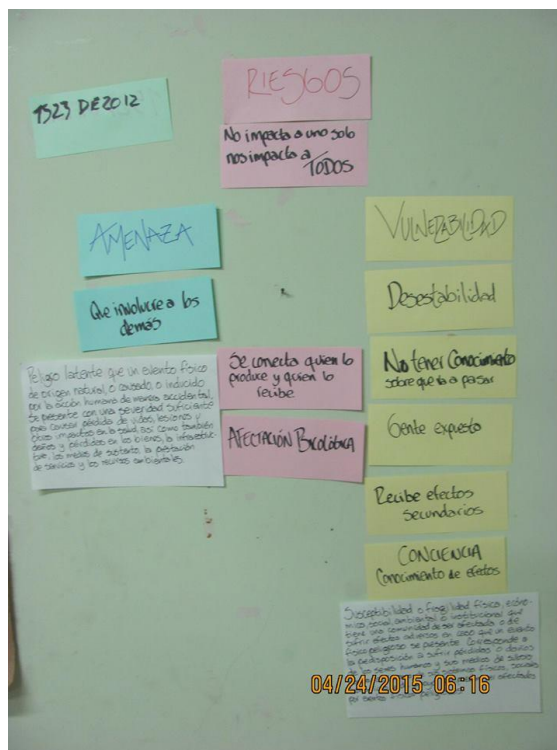 1523 DE 2012
RIESGOS
No impacta a uno solo
nos impacta a
TODOS
AMENAZA
Que involucre a los
demás
Peligro latente que un evento físico
de origen natural, o causado, o inducido
por la acción humana de manera accidental,
se presente con una severidad suficiente
para causar pérdida de vidas, lesiones u
otros impactos en la salud, así como también
daños y pérdidas en los bienes, la infraestruc-
tura, los medios de sustento, la prestación
de servicios y los recursos ambientales.
Se conecta quien lo
produce y quien lo
recibe
VULNERABILIDAD
Desestabilidad
No tener Conocimiento
sobre que va a pasar
Gente expuesta
Recibe efectos
secundarios
CONCIENCIA
Conocimiento de efectos
Susceptibilidad o fragilidad física, econó-
mica, social, ambiental o institucional que
tiene una comunidad de ser afectada o de
sufrir efectos adversos en caso que un evento
físico peligroso se presente. Corresponde a
la predisposición a sufrir pérdidas o daños
de los seres humanos y sus medios de subsis
físicos, sociales
afectados
por eventos físicos
04/24/2015 06:16